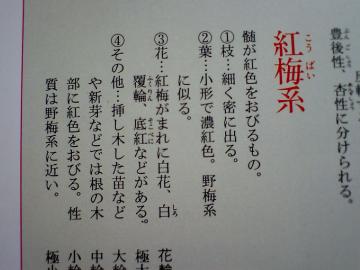 豊後性、杏性に分けられる。
紅梅系
こうばい
髄が紅色をおびるもの。
①枝…細く密に出る。
②葉…小形で濃紅色。野梅系
に似る。
③花…紅梅がまれに白花、白
しろ
覆輪、底紅などがある。
ふくりん
そこべに
④その他…挿し木した苗など
や新芽などでは根の木
部に紅色をおびる。性
質は野梅系に近い。
花輪
極大
大輪
中輪
小輪
極小